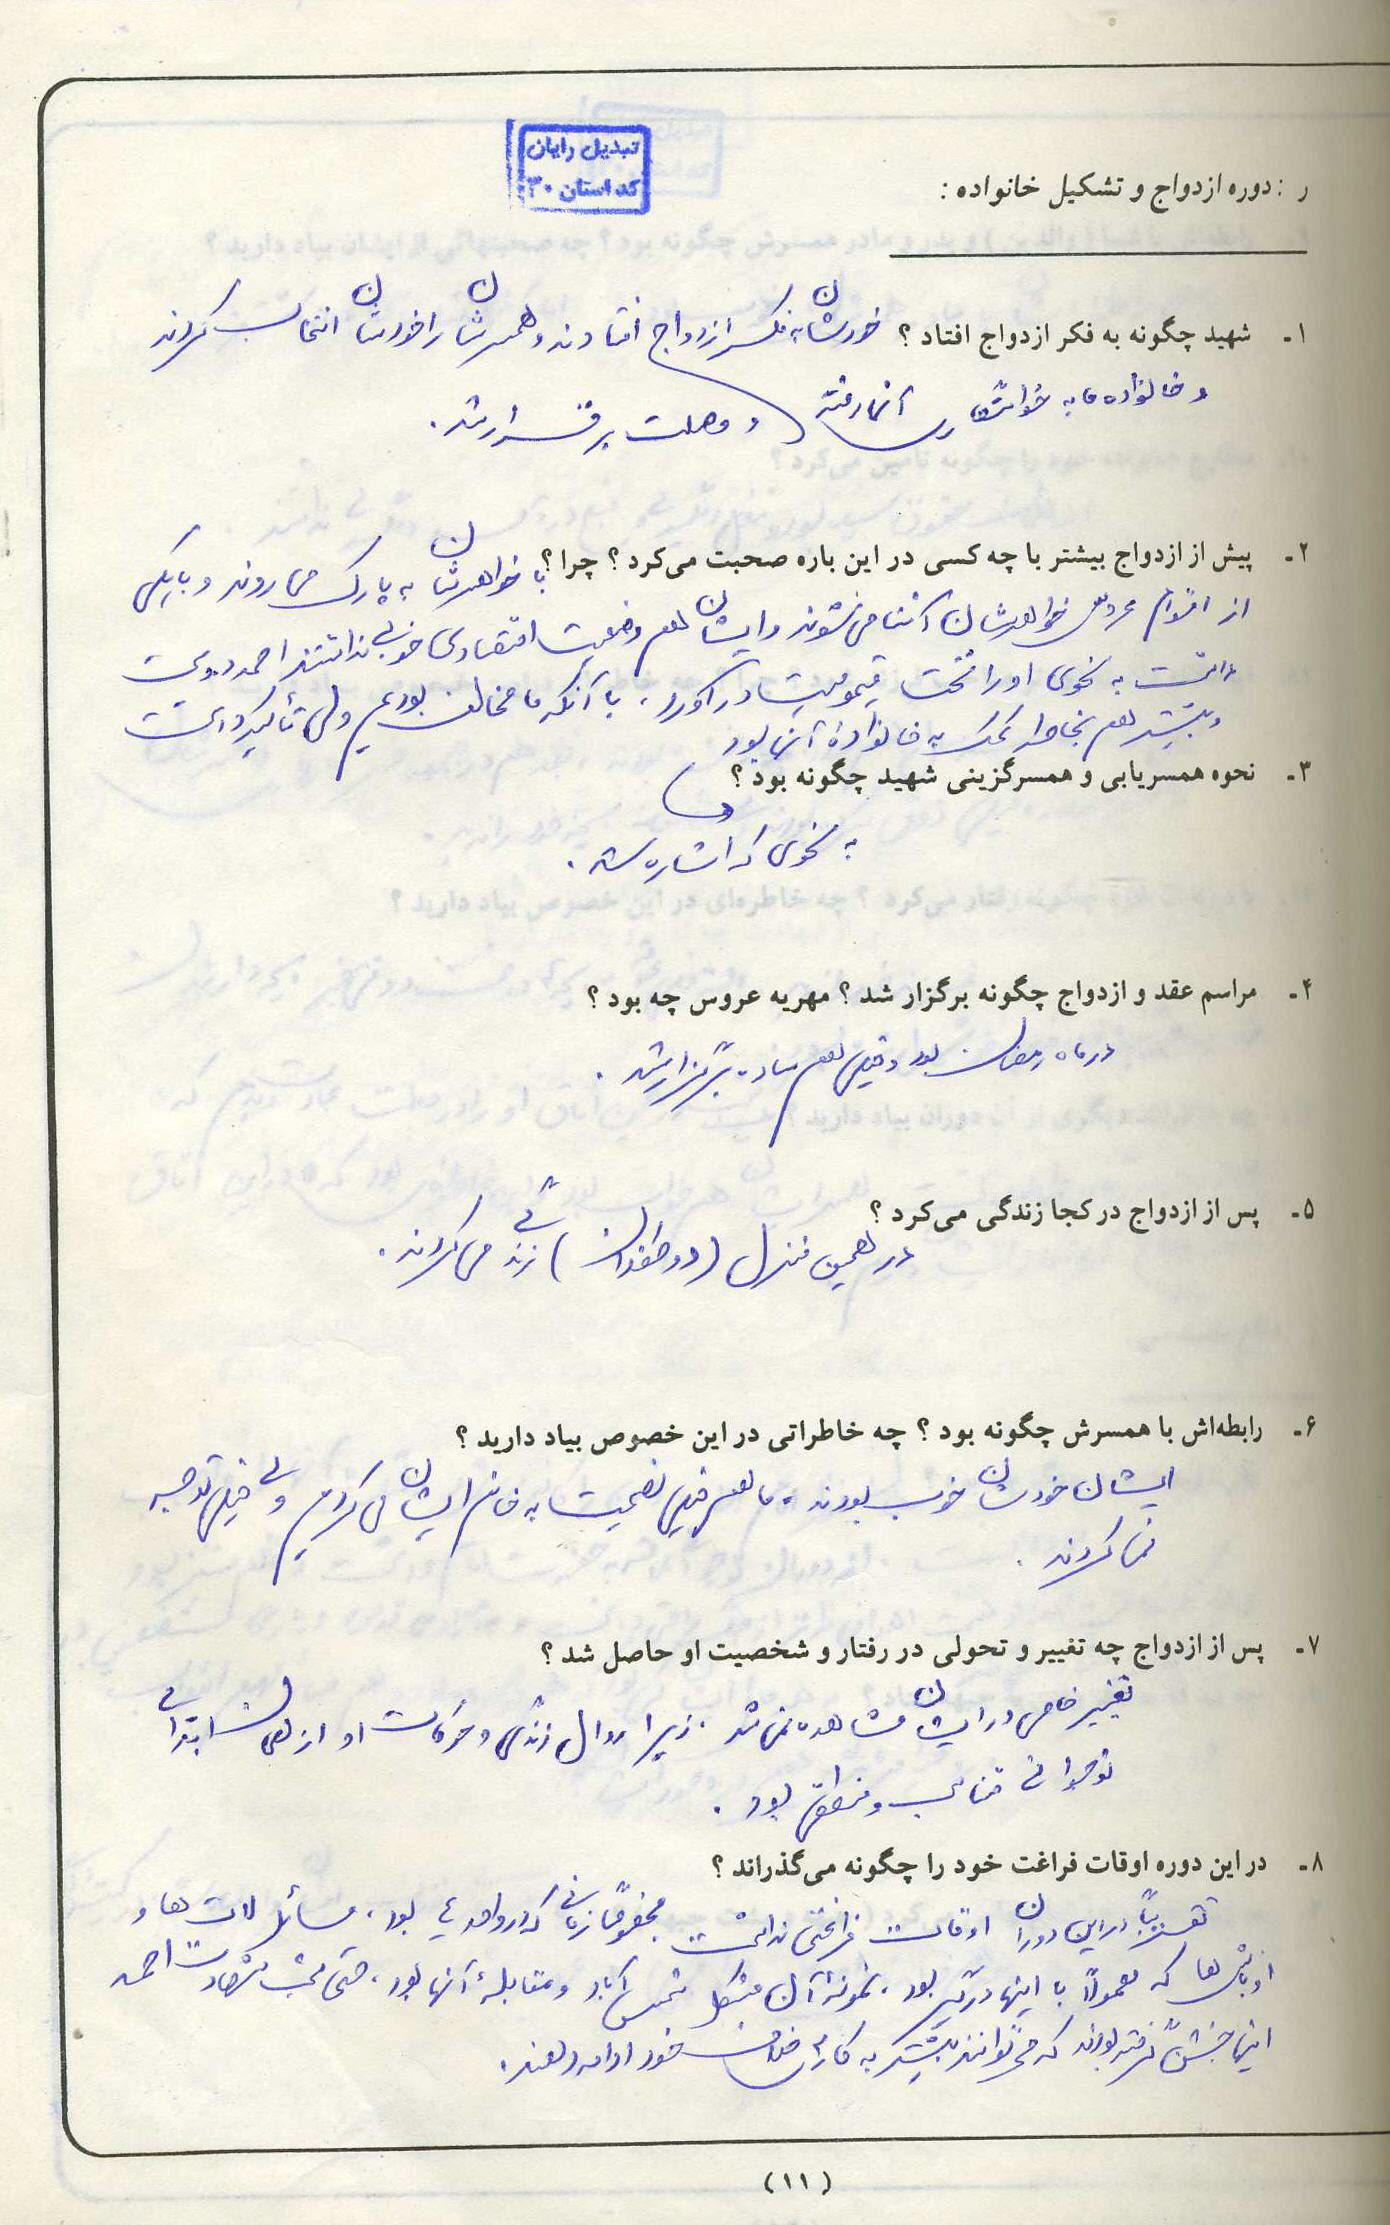 تبدیل رایان
کد استان ۳۰
ر : دوره ازدواج و تشکیل خانواده :
۱ـ شهید چگونه به فکر ازدواج افتاد ؟ خودشان به فکر ازدواج افتادند و همسرشان را خودشان انتخاب کردند
و خانواده ما به خواستگاری آنها رفتند و وصلت برقرار شد .
۲ـ پیش از ازدواج بیشتر با چه کسی در این باره صحبت می‌کرد ؟ چرا ؟ با خواهرشان به پارک می روند و با یکی
از اقوام عروس خواهرشان آشنا می‌شوند و ایشان هم وضعیت اقتصادی خوبی نداشتند احمد دوست
داشت به نحوی او را تحت قیمومیت درآورد ، با آنکه ما مخالف بودیم ولی تأکید داشت
و بیشتر هم بخاطر کمک به خانواده آنها بود
۳ـ نحوه همسریابی و همسرگزینی شهید چگونه بود ؟
به نحوی که اشاره شد .
۴ـ مراسم عقد و ازدواج چگونه برگزار شد ؟ مهریه عروس چه بود ؟
در ماه رمضان بود و خیلی هم ساده برگزار شد .
۵ـ پس از ازدواج در کجا زندگی می‌کرد ؟
در همین منزل ( ) زندگی می کردند .
۶ـ رابطه‌اش با همسرش چگونه بود ؟ چه خاطراتی در این خصوص بیاد دارید ؟
ایشان خودشان خوب بودند ، ما هم خیلی نصیحت به خانم ایشان می کردیم ولی خیلی توجه
نمی کردند .
۷ـ پس از ازدواج چه تغییر و تحولی در رفتار و شخصیت او حاصل شد ؟
تغییر خاصی در ایشان مشاهده نمی شد . زیرا روال زندگی و حرکات او از همان ابتدای
نوجوانی مناسب و منطقی بود .
۸ـ در این دوره اوقات فراغت خود را چگونه می‌گذراند ؟
تقریباً در این دوران اوقات فراغتی نداشت مخصوصاً زمانی که در بود ، مسائل لات ها و
اوباش ها که معمولاً با اینها درگیر بود ، نمونه آن مشکل شمس آباد و مقابله آنها بود ، حتی شب شهادت احمد
اینها جشن گرفته بودند که می توانند بیشتر به کارهای خلاف خود ادامه دهند .
(۱۱)